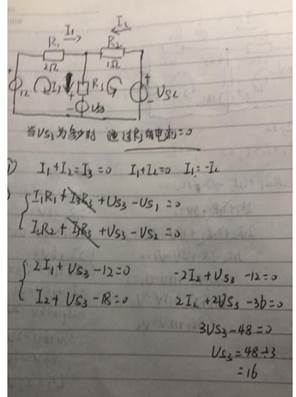 I₁ I₂
R₁ R₂
2Ω 1Ω
12 I₃ R₃ US₂
US₃
当US₃为多少时 通过R₃的电流=0
I₁+I₂=I₃=0 I₁+I₂=0 I₁=-I₂
I₁R₁+I₃R₃+US₃-US₁=0
I₂R₂+I₃R₃+US₃-US₂=0
2I₁+US₃-12=0 -2I₂+US₃-12=0
I₂+US₃-18=0 2I₂+2US₃-36=0
3US₃-48=0
US₃=48÷3
=16